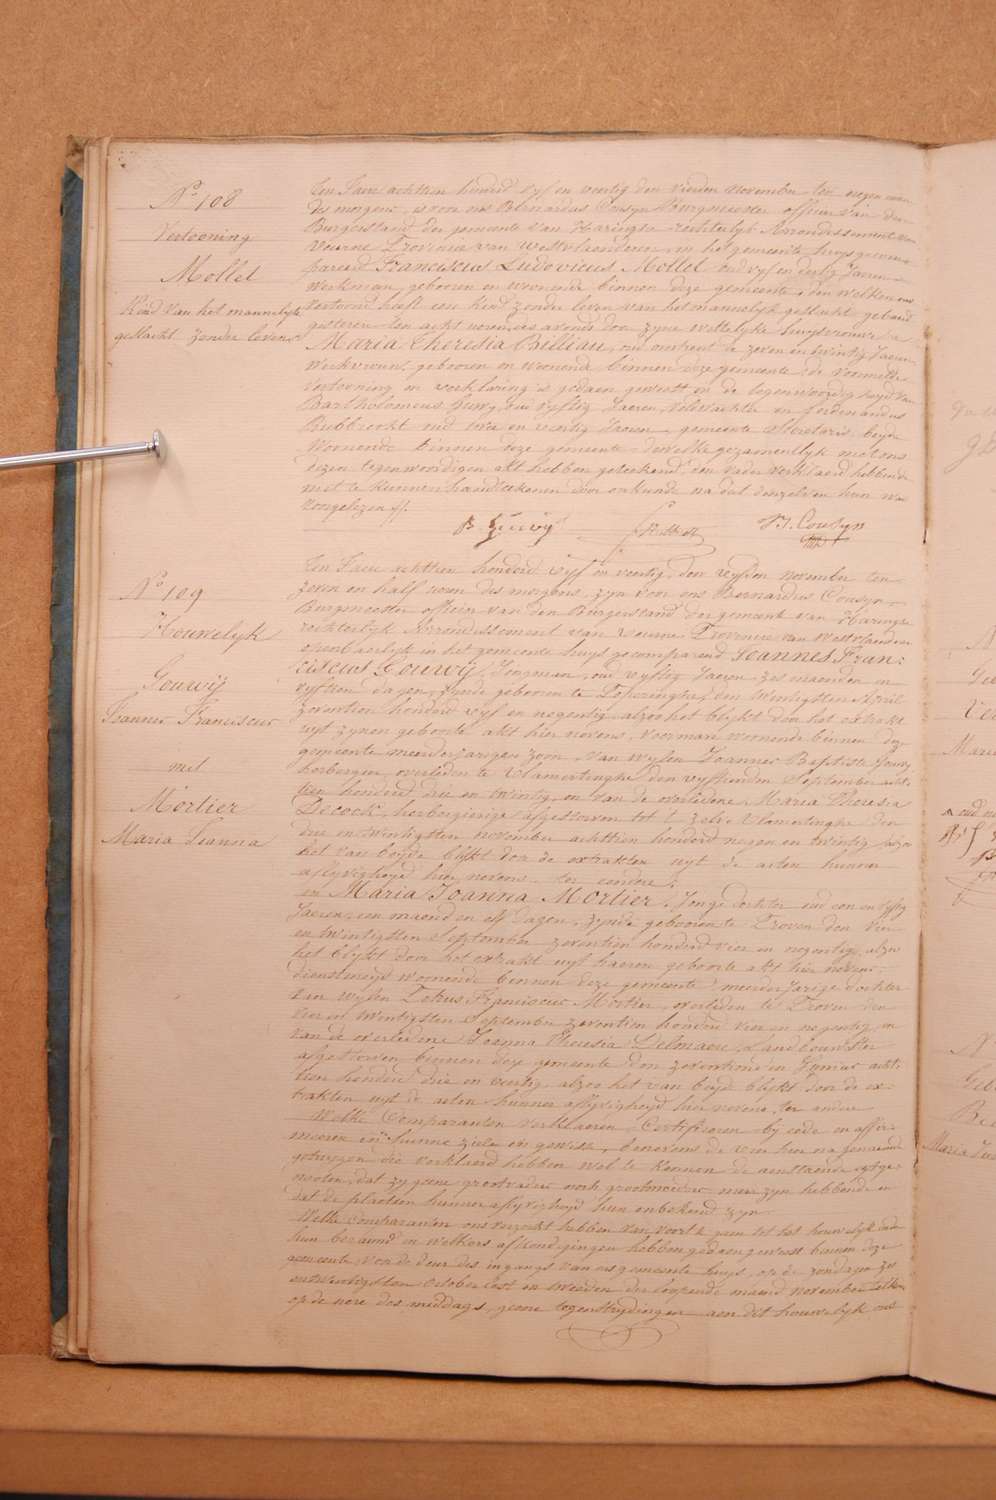 No 108
Vertooning
Mollet
Kind van het mannelyk
geslacht zonder leven
Ten Jaere achttien honderd vyf en veertig den vierden November ten negen uren
des morgens, is voor ons Bernardus Cousyn Burgmeester officier van den
Burgerstand der gemeente van Haringhe rechterlyk Arrondissement van
Veurne Provincie van Westvlaenderen, in het gemeente huys gecom-
pareerd Franciscus Ludovicus Mollet oud vyf en dertig Jaeren
Werkman, geboren en woonende binnen deze gemeente, den welken ons
vertoond heeft een kind zonder leven van het mannelyk geslacht gebaerd
gisteren ten acht uren des avonds door zyne wettelyke huysvrouwe
Maria Theresia Billiau, oud omtrent de zeven en twintig Jaeren
Werkvrouw, geboren en woonende binnen deze gemeente, de voormelde
vertooning en verklaring is gedaen geweest in de tegenwoordigheyd van
Bartholomeus Gouwy, oud vyftig Jaeren, veldwachter en Ferdinandus
Rubbrecht oud drie en veertig Jaeren, gemeente Secretaris beyde
woonende binnen deze gemeente dewelke gezamentlyk met ons
dezen tegenwoordigen akt hebben geteekend, den vader verklaerd hebbende
niet te kunnen handteekenen door onkunde na dat denzelven hun was
voorgelezen
B Gouwy F Rubbrecht B. J. Cousyn
No 109
Houwelyk
Gouwÿ
Joannes Franciscus
met
Mortier
Maria Joanna
Ten Jaere achttien honderd vyf en veertig, den vyfden November ten
zeven en half uren des morgens, zyn voor ons Bernardus Cousyn
Burgmeester officier van den Burgerstand der gemeente van Haringhe
rechterlyk Arrondissement van Veurne Provincie van Westvlaenderen
openbaerlyk in het gemeente huys gecompareerd Joannes Fran-
ciscus Gouwÿ, Jongman, oud vyftig Jaeren zes maenden en
vyftien dagen, zynde geboren te Poperinghe, den twintigsten April
zeventien honderd vyf en negentig, alzoo het blykt door het extrakt
uyt zynen geboorte akt hier nevens, voerman woonende binnen deze
gemeente meerderjarigen zoon, van wylen Joannes Baptiste Gouwy
herbergier, overleden te Vlamertinghe den vyftienden September acht-
tien honderd drie en twintig, en van de overledene Maria Theresia
Decock, herbergierige afgestorven tot t' zelve Vlamertinghe den
drie en twintigsten November achttien honderd negen en twintig alzoo
het van beyde blykt door de extrakten uyt de akten hunner
aflyvigheyd hier nevens, ter eendere;
en Maria Joanna Mortier, Jonge dochter oud een en vyftig
Jaeren, een maend en elf dagen, zynde geboren te Proven den vier
en twintigsten September zeventien honderd vier en negentig, alzoo
het blykt door het extrakt uyt haeren geboorte akt hier nevens,
dienstmeyd woonende binnen deze gemeente, meerderjarige dochter
van wylen Petrus Franciscus Mortier, overleden te Proven den
vier en twintigsten September zeventien honderd vier en negentig, en
van de overledene Joanna Theresia Delmaere, Landbouwster
afgestorven binnen deze gemeente den zevenden January acht-
tien honderd drie en veertig, alzoo het van beyde blykt door de ex-
trakten uyt de akten hunner aflyvigheyd hier nevens, ter andere
Welke Comparanten verklaeren Certifieren by eede en affir-
meeren in hunne ziele en gewisse, benevens de vier hier na genoemde
getuygen die verklaerd hebben wel te kennen de aenstaende echtge-
nooten, dat zy geene grootvaders noch grootmoeders meer zyn hebbende en
dat de plaetsen hunner aflyvigheyd hun onbekend zyn.
Welke comparanten ons verzocht hebben van voort te gaen tot het houwelyk onder
hun beraemd en welkers afkondigingen hebben gedaen geweest binnen deze
gemeente, voor de deur des ingangs van ons gemeente huys, op de zondagen zes
en twintigsten October lest en tweeden der loopende maend November telkens
op de uere des middags, geene tegenstrydingen aen dit houwelyk ons